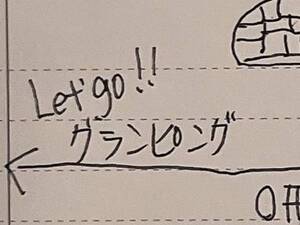 Let's go!!
グランピング